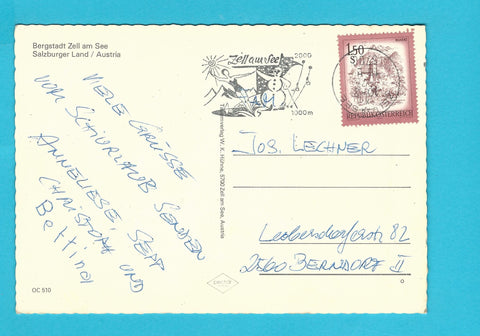 Bergstadt Zell am See
Salzburger Land / Austria
VIELE GRÜSSE
VOM SCHIURLAUB SENDEN
ANNELIESE, SEPP
CHRISTOPH UND
Bettina
OC 510
Zell am See
2000
1000 m
150
S
REPUBLIK ÖSTERREICH
W. K. Höhne, 5700 Zell am See, Austria
JOS. LECHNER
Leobersdorferstr 82
2560 BERNDORF II